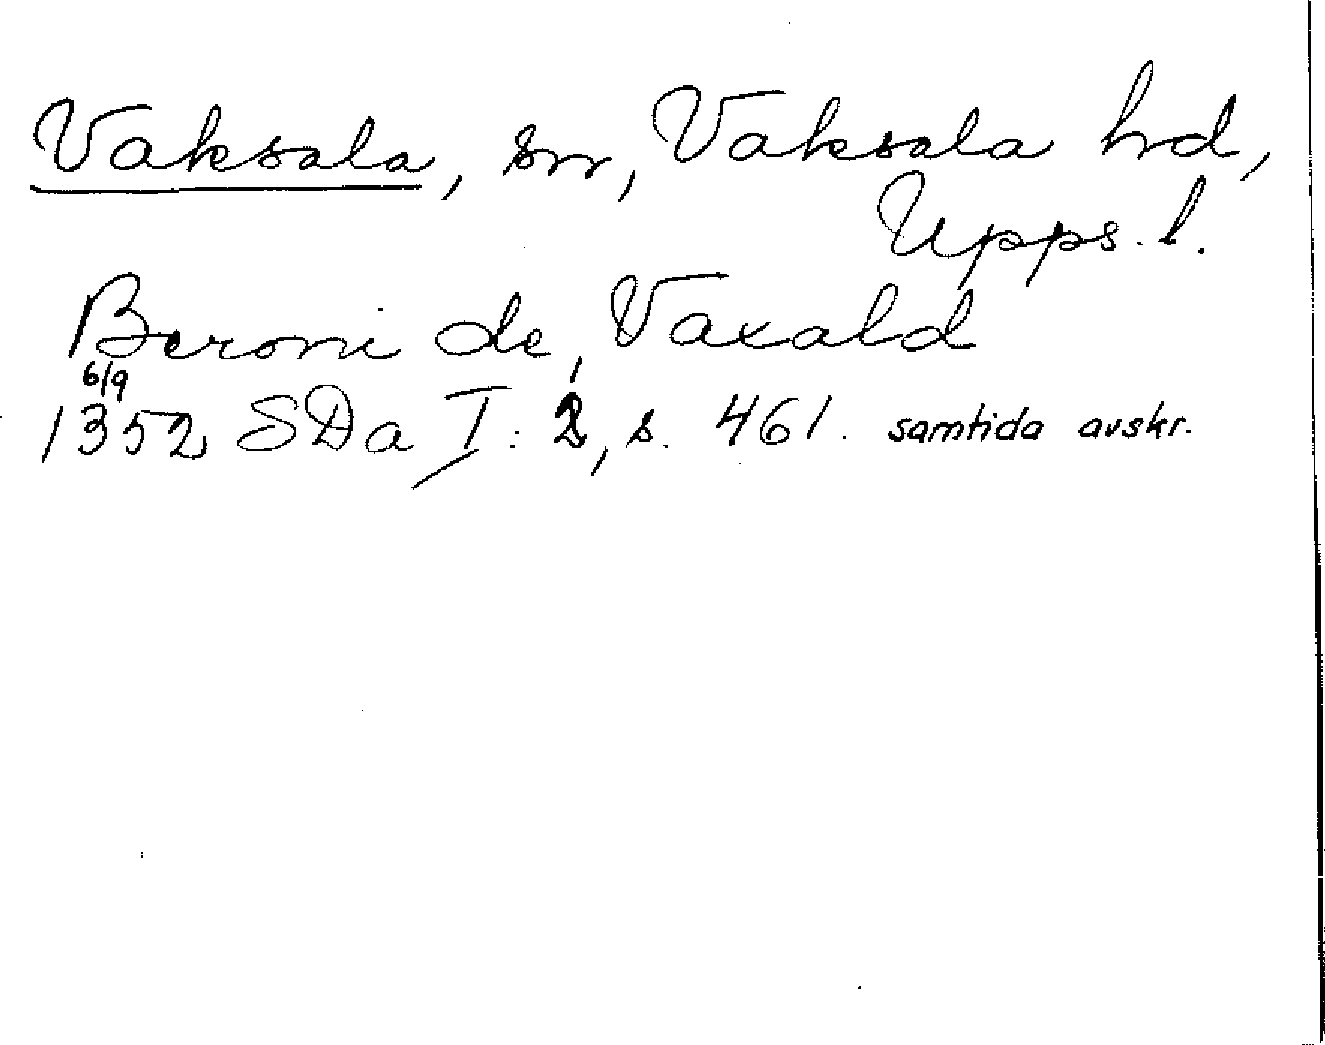 Vaksala, sn, Vaksala hd,
Upps. l.
Beroni de Vaxald
6/9
1352 SDa I: 2, s. 461. samtida avskr.